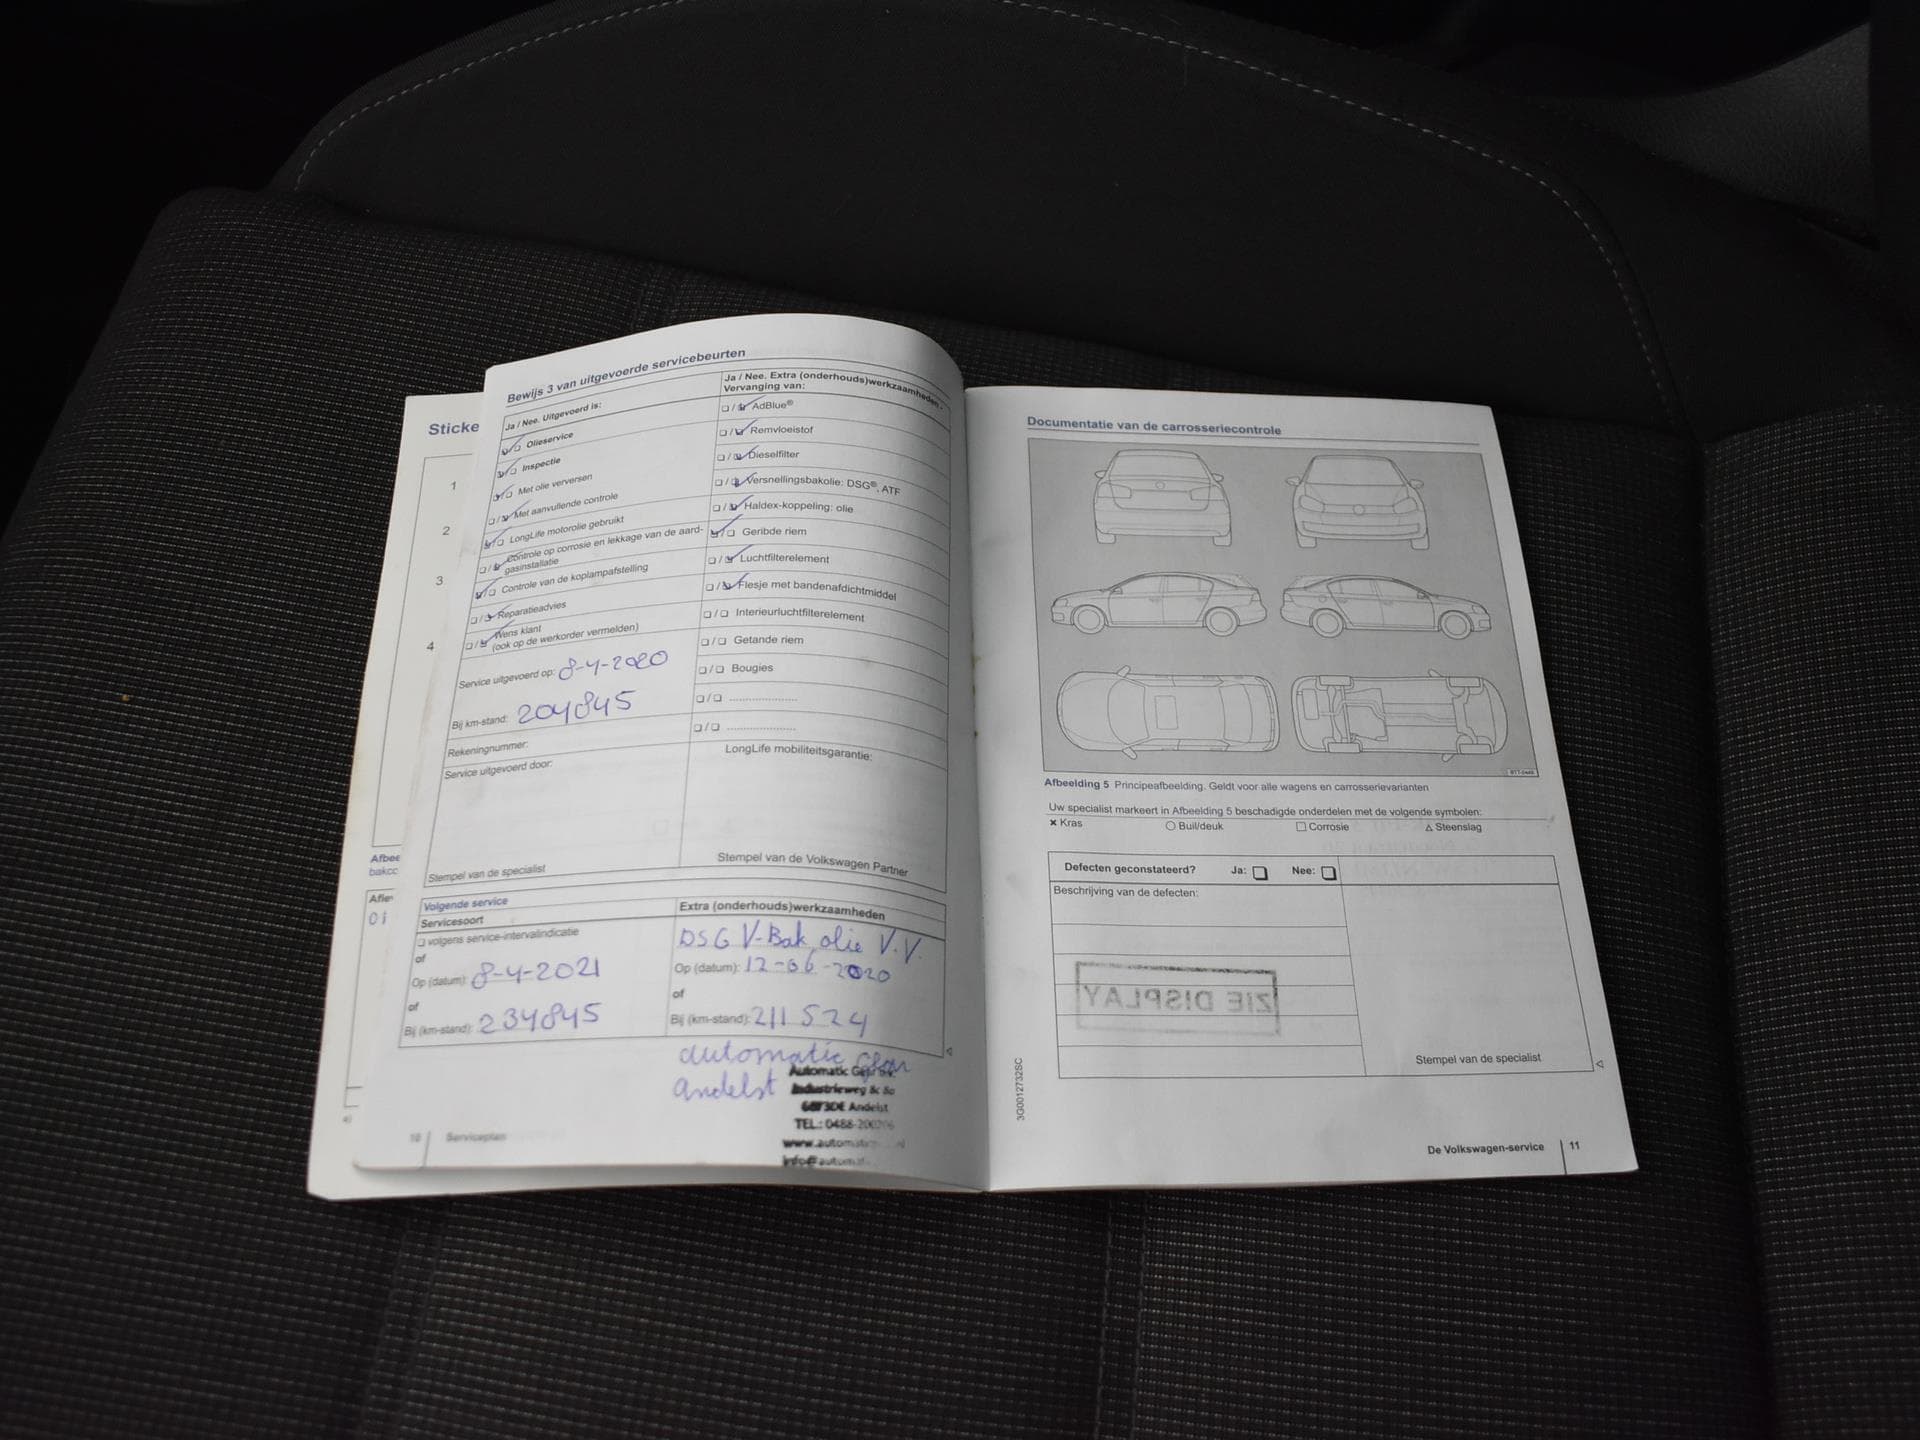 Sticke
1
2
3
4
Afbee
bakcc
Afle
01
Bewijs 3 van uitgevoerde servicebeurten
Ja / Nee. Uitgevoerd is:
Olieservice
Inspectie
Met olie verversen
Met aanvullende controle
LongLife motorolie gebruikt
Controle op corrosie en lekkage van de aard-
gasinstallatie
Controle van de koplampafstelling
Reparatieadvies
Wens klant
(ook op de werkorder vermelden)
Service uitgevoerd op: 8-4-2020
Bij km-stand: 204845
Rekeningnummer:
Service uitgevoerd door:
Stempel van de specialist
Ja / Nee. Extra (onderhouds)werkzaamheden -
Vervanging van:
AdBlue®
Remvloeistof
Dieselfilter
Versnellingsbakolie: DSG®, ATF
Haldex-koppeling: olie
Geribde riem
Luchtfilterelement
Flesje met bandenafdichtmiddel
Interieurluchtfilterelement
Getande riem
Bougies
LongLife mobiliteitsgarantie:
Stempel van de Volkswagen Partner
Volgende service
Servicesoort
volgens service-intervalindicatie
of
Op (datum): 8-4-2021
of
Bij (km-stand): 234845
Extra (onderhouds)werkzaamheden
DSG V-Bak olie V.V.
Op (datum): 12-06-2020
of
Bij (km-stand): 211524
automatic Gear
andelst
Automatic Gear
Industrieweg 8c 8a
Andelst
TEL.: 0488-
www.automatic
info@automat
10 Serviceplan
Documentatie van de carrosseriecontrole
Afbeelding 5 Principeafbeelding. Geldt voor alle wagens en carrosserievarianten
Uw specialist markeert in Afbeelding 5 beschadigde onderdelen met de volgende symbolen:
Kras Buil/deuk Corrosie Steenslag
Defecten geconstateerd? Ja: Nee:
Beschrijving van de defecten:
ZIE DISPLAY
Stempel van de specialist
3G0012732SC
De Volkswagen-service 11